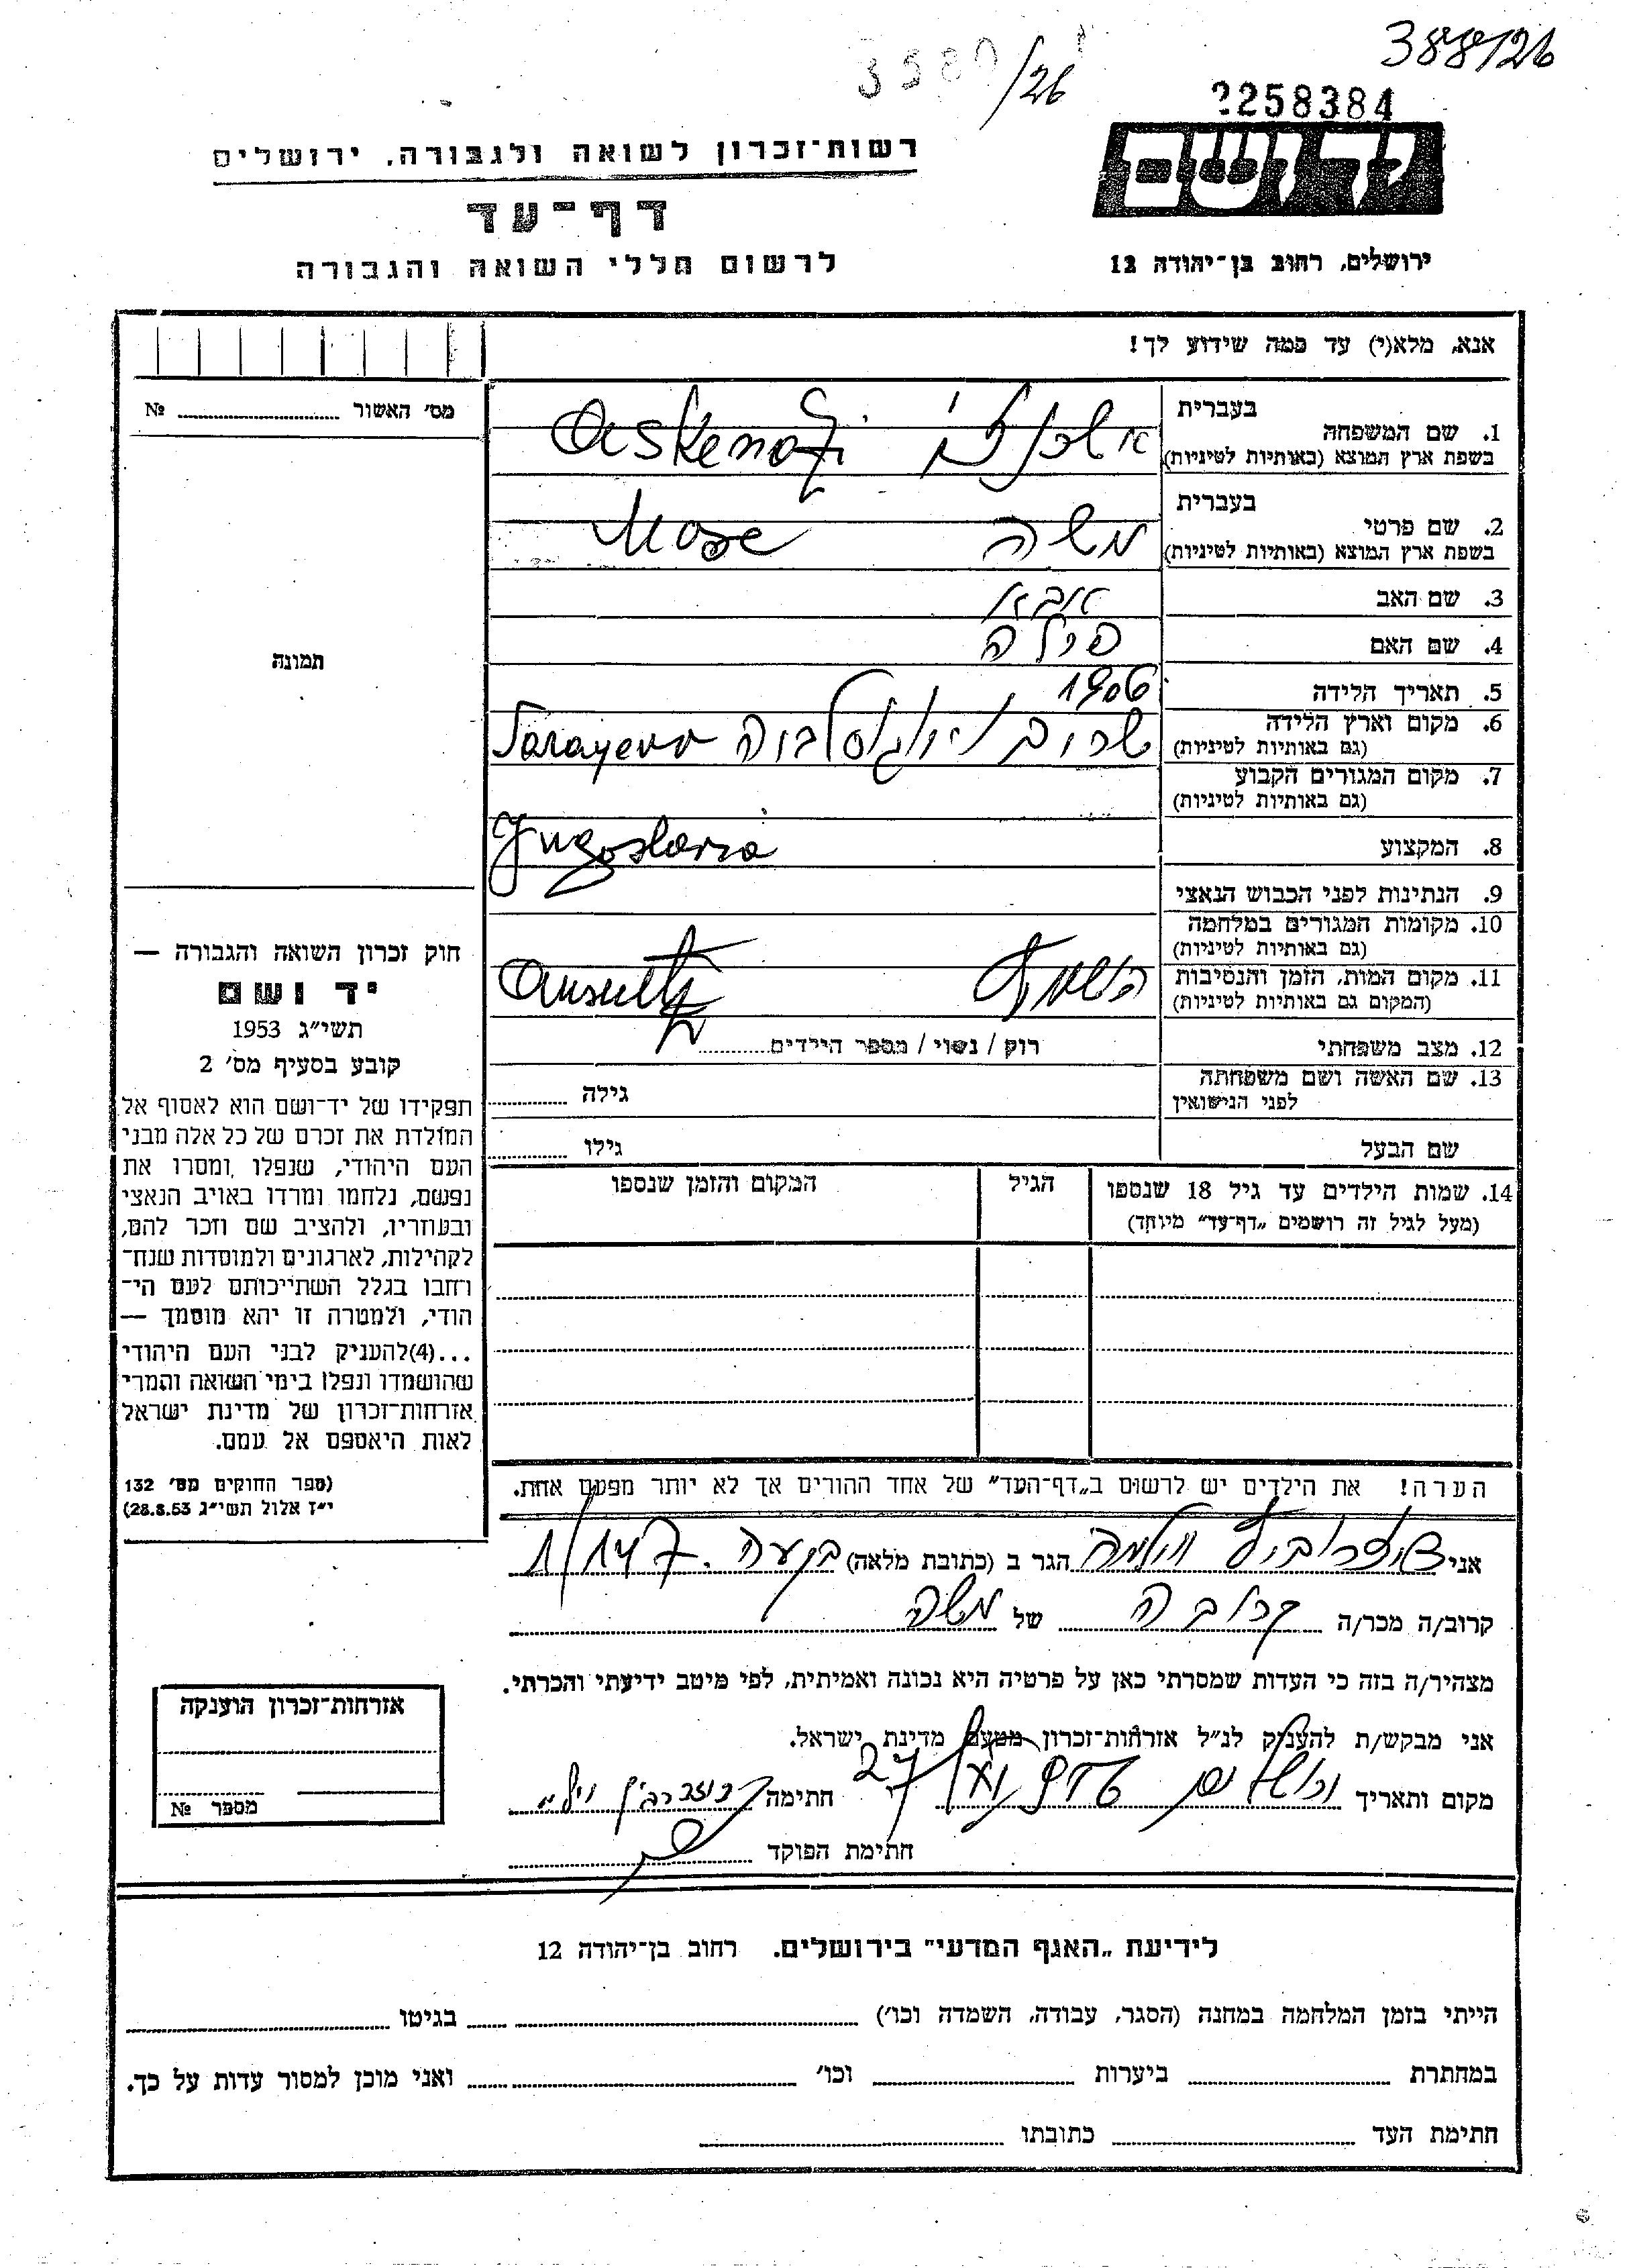 388/26
3580/26
2258384
יד ושם
רשות־זכרון לשואה ולגבורה, ירושלים
דף־עד
לרשום חללי השואה והגבורה
ירושלים, רחוב בן־יהודה 12
אנא, מלא(י) עד כמה שידוע לך!
מס׳ האשור № 
תמונה
1. שם המשפחה
בעברית
בשפת ארץ המוצא (באותיות לטיניות)
אשכנזי Askenazi
2. שם פרטי
בעברית
בשפת ארץ המוצא (באותיות לטיניות)
משה Mose
3. שם האב
אבא
4. שם האם
5. תאריך הלידה
1906
6. מקום וארץ הלידה
(גם באותיות לטיניות)
יוגוסלביה Sarayevo
7. מקום המגורים הקבוע
(גם באותיות לטיניות)
Jugoslavia
8. המקצוע
9. הנתינות לפני הכבוש הנאצי
10. מקומות המגורים במלחמה
(גם באותיות לטיניות)
11. מקום המות, הזמן והנסיבות
(המקום גם באותיות לטיניות)
12. מצב משפחתי
רוק / נשוי / מספר הילדים
13. שם האשה ושם משפחתה
לפני הנישואין
גילה
שם הבעל
גילו
14. שמות הילדים עד גיל 18 שנספו
(מעל לגיל זה רושמים „דף־עד״ מיוחד)
הגיל
המקום והזמן שנספו
חוק זכרון השואה והגבורה —
יד ושם
תשי״ג 1953
קובע בסעיף מס׳ 2
תפקידו של יד־ושם הוא לאסוף אל
המולדת את זכרם של כל אלה מבני
העם היהודי, שנפלו ומסרו את
נפשם, נלחמו ומרדו באויב הנאצי
ובעוזריו, ולהציב שם וזכר להם,
לקהילות, לארגונים ולמוסדות שנח־
רחבו בגלל השתייכותם לעם הי־
הודי, ולמטרה זו יהא מוסמך —
...(4)להעניק לבני העם היהודי
שהושמדו ונפלו בימי השואה והמרי
אזרחות־זכרון של מדינת ישראל
לאות היאספם אל עמם.
(ספר החוקים מס׳ 132
י״ז אלול תשי״ג 28.8.53)
הערה! את הילדים יש לרשום ב„דף־העד״ של אחד ההורים אך לא יותר מפעם אחת.
אני הגר ב (כתובת מלאה) בקעה. 1/147
קרוב/ה מכר/ה קרובה של משה
מצהיר/ה בזה כי העדות שמסרתי כאן על פרטיה היא נכונה ואמיתית, לפי מיטב ידיעתי והכרתי.
אני מבקש/ת להעניק לנ״ל אזרחות־זכרון מטעם מדינת ישראל.
מקום ותאריך 27 חתימה
חתימת הפוקד
אזרחות־זכרון הוענקה
מספר №
לידיעת „האגף המדעי״ בירושלים. רחוב בן־יהודה 12
הייתי בזמן המלחמה במחנה (הסגר, עבודה, השמדה וכו׳) בגיטו
במחתרת ביערות וכו׳ ואני מוכן למסור עדות על כך.
חתימת העד כתובתו